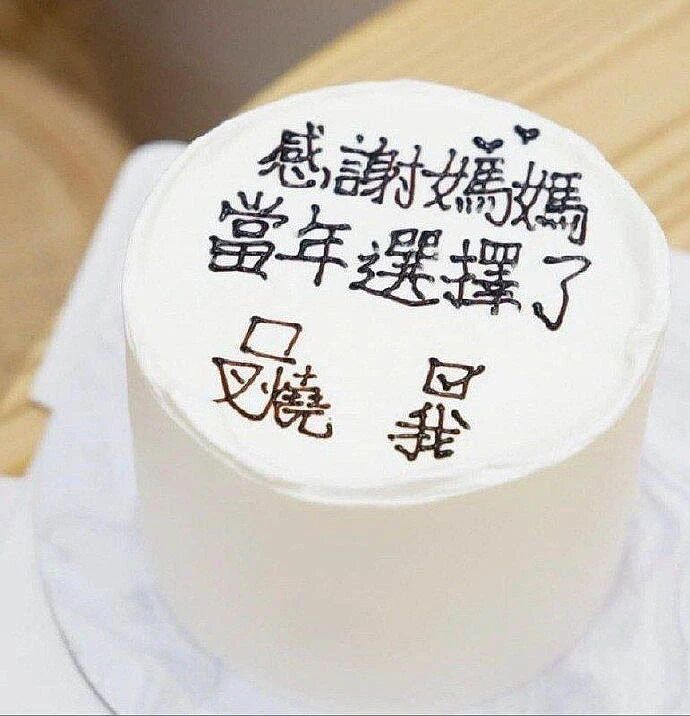 感謝媽媽
當年選擇了
叉燒 我